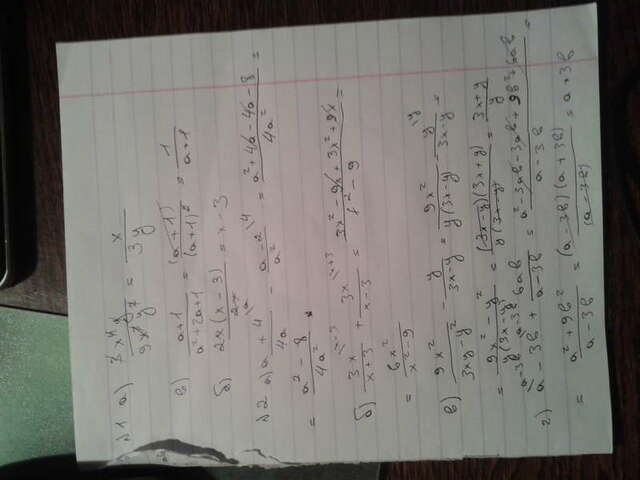 №1 а) = x / 3y
в) a+1 / a²+2a+1 = (a+1) / (a+1)² = 1 / a+1
б) 2x(x-3) / 2x = x-3
№2 а) a+4 / 4a - a-2 / a² = a²+4a-4a-8 / 4a² =
= a²-8 / 4a²
б) 3x / x+3 + 3x / x-3 = 3x²-9x+3x²+9x / x²-9 =
= 6x² / x²-9
в) 9x² / 3xy-y² - y / 3x-y = 9x² / y(3x-y) - y / 3x-y =
= 9x²-y² / y(3x-y) = (3x-y)(3x+y) / y(3x-y) = 3x+y / y
г) a-3b + 6ab / a-3b = a²-3ab-3ab+9b²+6ab / a-3b =
= a²+9b² / a-3b = (a-3b)(a+3b) / (a-3b) = a+3b